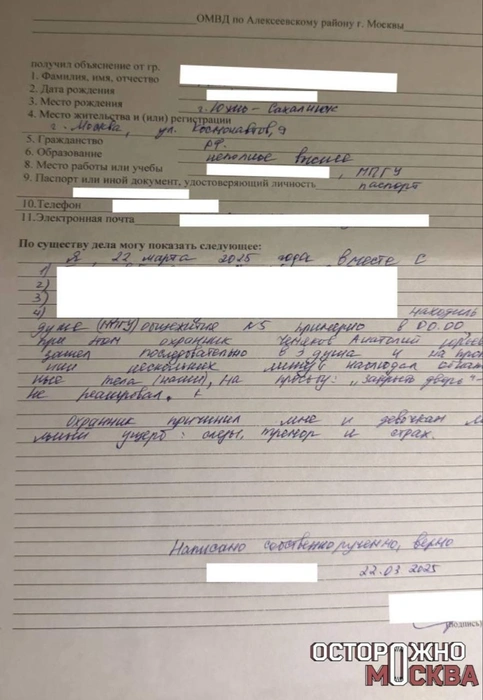 ОМВД по Алексеевскому району г. Москвы
получил объяснение от гр.
1. Фамилия, имя, отчество
2. Дата рождения
3. Место рождения г. Южно-Сахалинск
4. Место жительства и (или) регистрации
г. Москва, ул. Космонавтов, 9
5. Гражданство РФ.
6. Образование неполное высшее
8. Место работы или учебы , МПГУ
9. Паспорт или иной документ, удостоверяющий личность паспорт
10.Телефон
11.Электронная почта
По существу дела могу показать следующее:
Я , 22 марта 2025 года вместе с
1)
2)
3)
4) находились
душе (МПГУ) общежития №5 примерно в 00.00,
при этом охранник Анатолий
зашел последовательно в 3 душа и на
нескольких минут наблюдал
тела (наши), на просьбу: "закрыть дверь"
не реагировал.
Охранник причинил мне и девочкам
ущерб: слезы, тремор и страх.
Написано собственноручно, верно
22.03 2025
(подпись)
ОСТОРОЖНО
МОСКВА